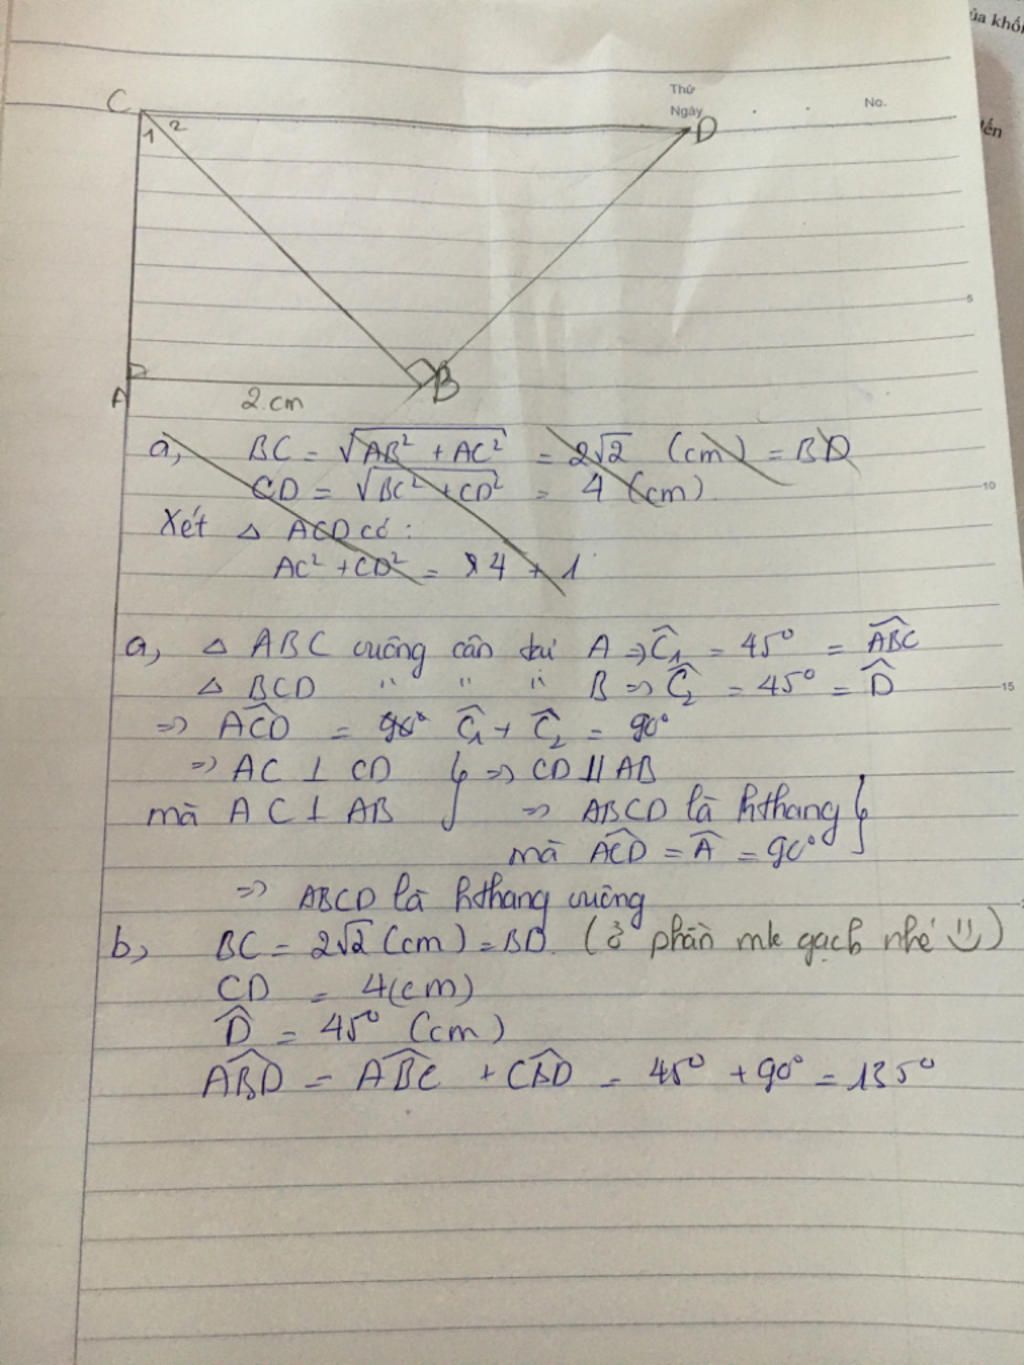 ủa khối
Thứ
Ngày
No.
đến
C
1 2
D
A
B
2 cm
5
a, BC = √AB² + AC² = 2√2 (cm) = BD
CD = √BC² + CD² = 4 (cm)
10
Xét △ ACD có:
AC² + CD² = 4 + 1
a, △ ABC vuông cân tại A ⇒ Ĉ₁ = 45° = ABC^
△ BCD " " " B ⇒ Ĉ₂ = 45° = D̂
15
⇒ ACD^ = 90° Ĉ₁ + Ĉ₂ = 90°
⇒ AC ⊥ CD } ⇒ CD // AB
mà AC ⊥ AB } ⇒ ABCD là hthang }
mà ACD^ = Â = 90° }
⇒ ABCD là hthang vuông
b, BC = 2√2 (cm) = BD. (ở phần mk gạch nhé)
CD = 4(cm)
D̂ = 45° (cm)
ABD^ = ABC^ + CBD^ = 45° + 90° = 135°